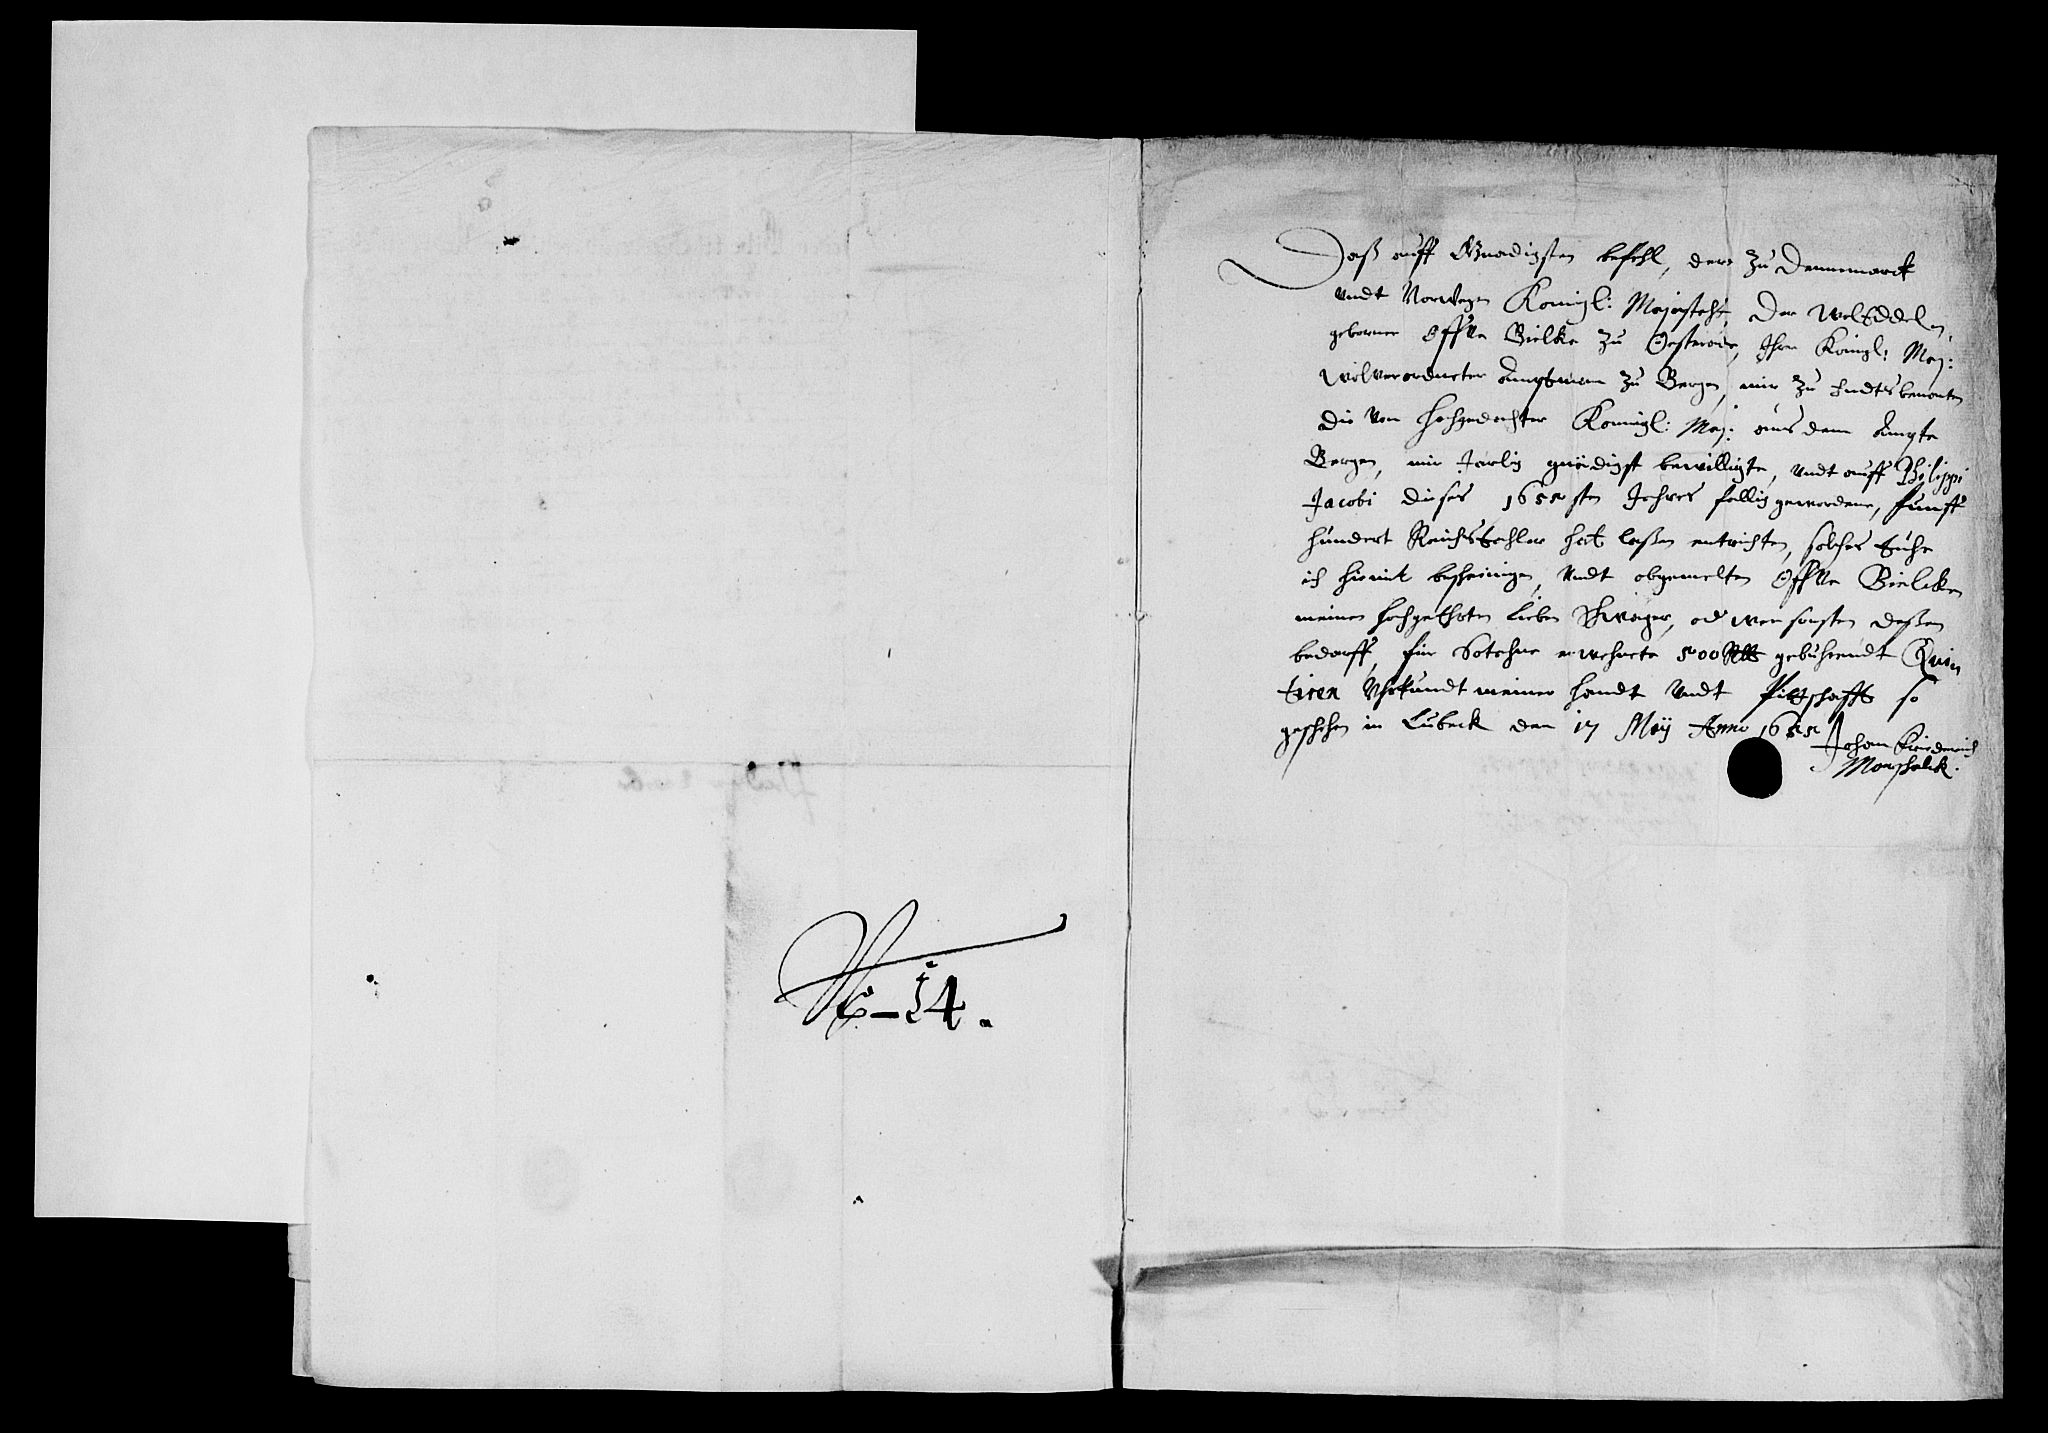 N<sup>o</sup> – 14.
Daß auff Gnadigsten befehl, der zu Dennemarck
undt Norwegen Konigl: Majesteht, Der WolEddel
geborner Offve Bielke zu Oesterode, Ihre Königl: May:
wolverordneter Amptman zu Bergen, mir zu Endtsbenanten
die von hochgedachter Konnigl: May: aus dem Ampte
Bergen, mir Jarlig gnädigst bewilligte, undt auff Philippi
Jacobi dieses 1655sten Jahres fellig gewordene, funff
hundert Reichsthaler hat laßen entrichten, solches thue
ich hiemit bescheinigen, undt obgemelten Offve Bielcken
meinen hochgeehrten lieben Schwager, od wer sonsten deßen
bedarff, für sotahne erwehnete 500 Rth gebuhrendt Quin
tiren Uhrkundt meiner handt undt Pittschafft so
geschehen in Lubeck den 17 Maÿ Anno 1655
Johan Friederich
Marschalck.